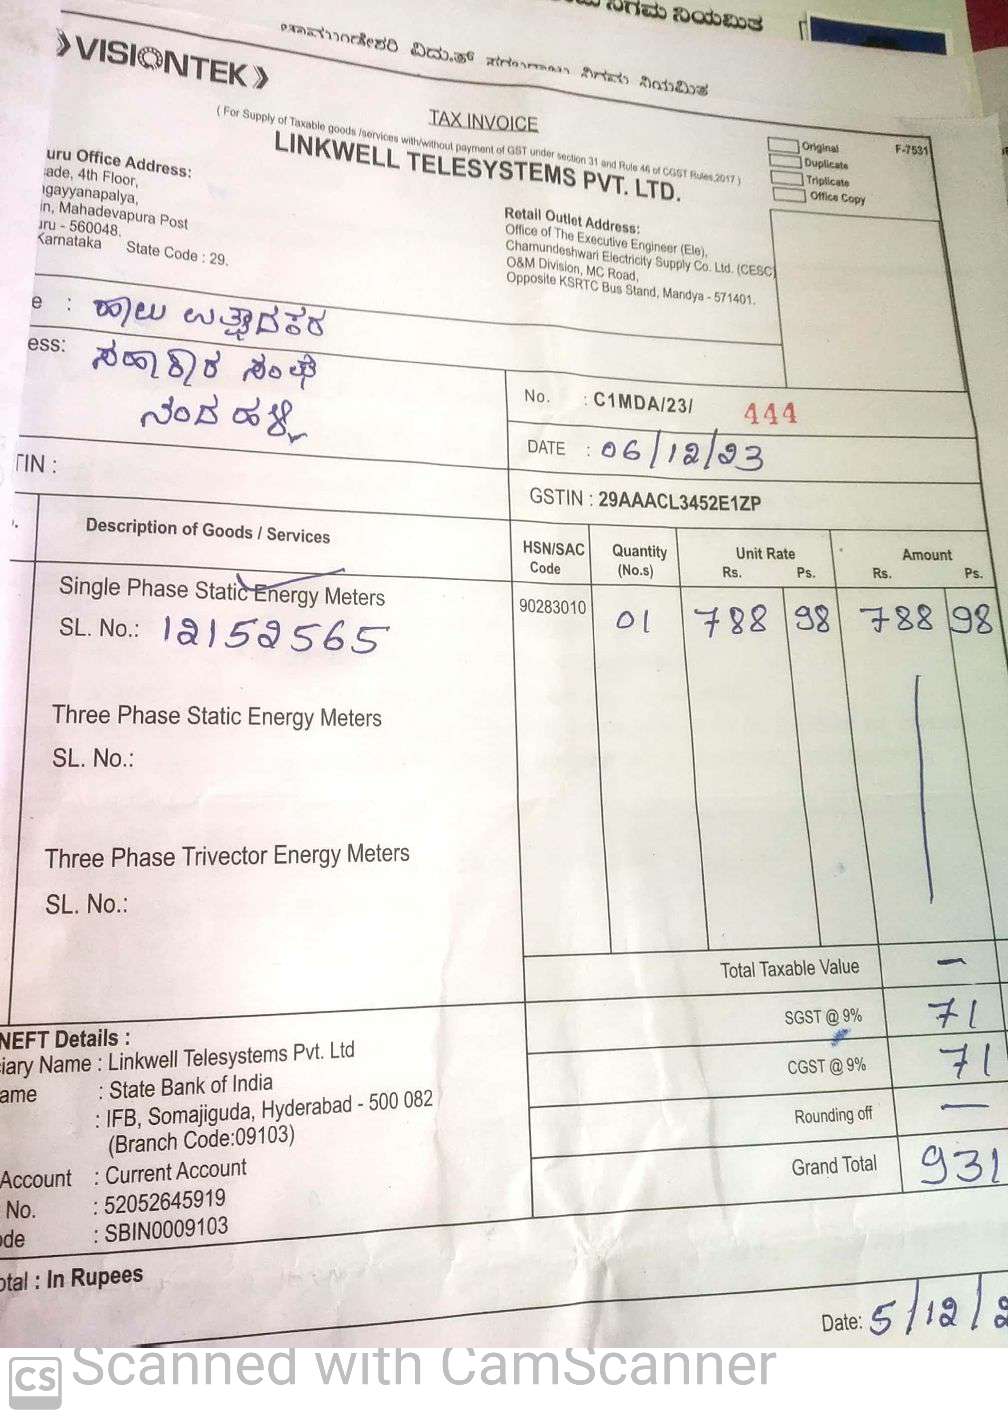 ನಿಗಮ ನಿಯಮಿತ
VISIONTEK
ವಿದ್ಯುತ್ ಸರಬರಾಜು ನಿಗಮ ನಿಯಮಿತ
TAX INVOICE
( For Supply of Taxable goods /services with/without payment of GST under section 31 and Rule 46 of CGST Rules,2017 )
LINKWELL TELESYSTEMS PVT. LTD.
Original
F-7531
Duplicate
Triplicate
Office Copy
uru Office Address:
ade, 4th Floor,
gayyanapalya,
in, Mahadevapura Post
uru - 560048.
Karnataka State Code : 29.
Retail Outlet Address:
Office of The Executive Engineer (Ele),
Chamundeshwari Electricity Supply Co. Ltd. (CESC
O&M Division, MC Road,
Opposite KSRTC Bus Stand, Mandya - 571401.
e : ಹಾಲು ಉತ್ಪಾದಕರ
ess: ಸಹಾಕಾರ ಸಂಘ
ನಂದಹಳ್ಳಿ
No. : C1MDA/23/ 444
DATE : 06/12/23
TIN :
GSTIN : 29AAACL3452E1ZP
Description of Goods / Services
HSN/SAC Code
Quantity (No.s)
Unit Rate
Rs. Ps.
Amount
Rs. Ps.
Single Phase Static Energy Meters
90283010 01 788 98 788 98
SL. No.: 12152565
Three Phase Static Energy Meters
SL. No.:
Three Phase Trivector Energy Meters
SL. No.:
Total Taxable Value —
SGST @ 9% 71
CGST @ 9% 71
Rounding off —
Grand Total 931
NEFT Details :
iary Name : Linkwell Telesystems Pvt. Ltd
ame : State Bank of India
: IFB, Somajiguda, Hyderabad - 500 082
(Branch Code:09103)
Account : Current Account
No. : 52052645919
ode : SBIN0009103
otal : In Rupees
Date: 5/12/2
CS Scanned with CamScanner